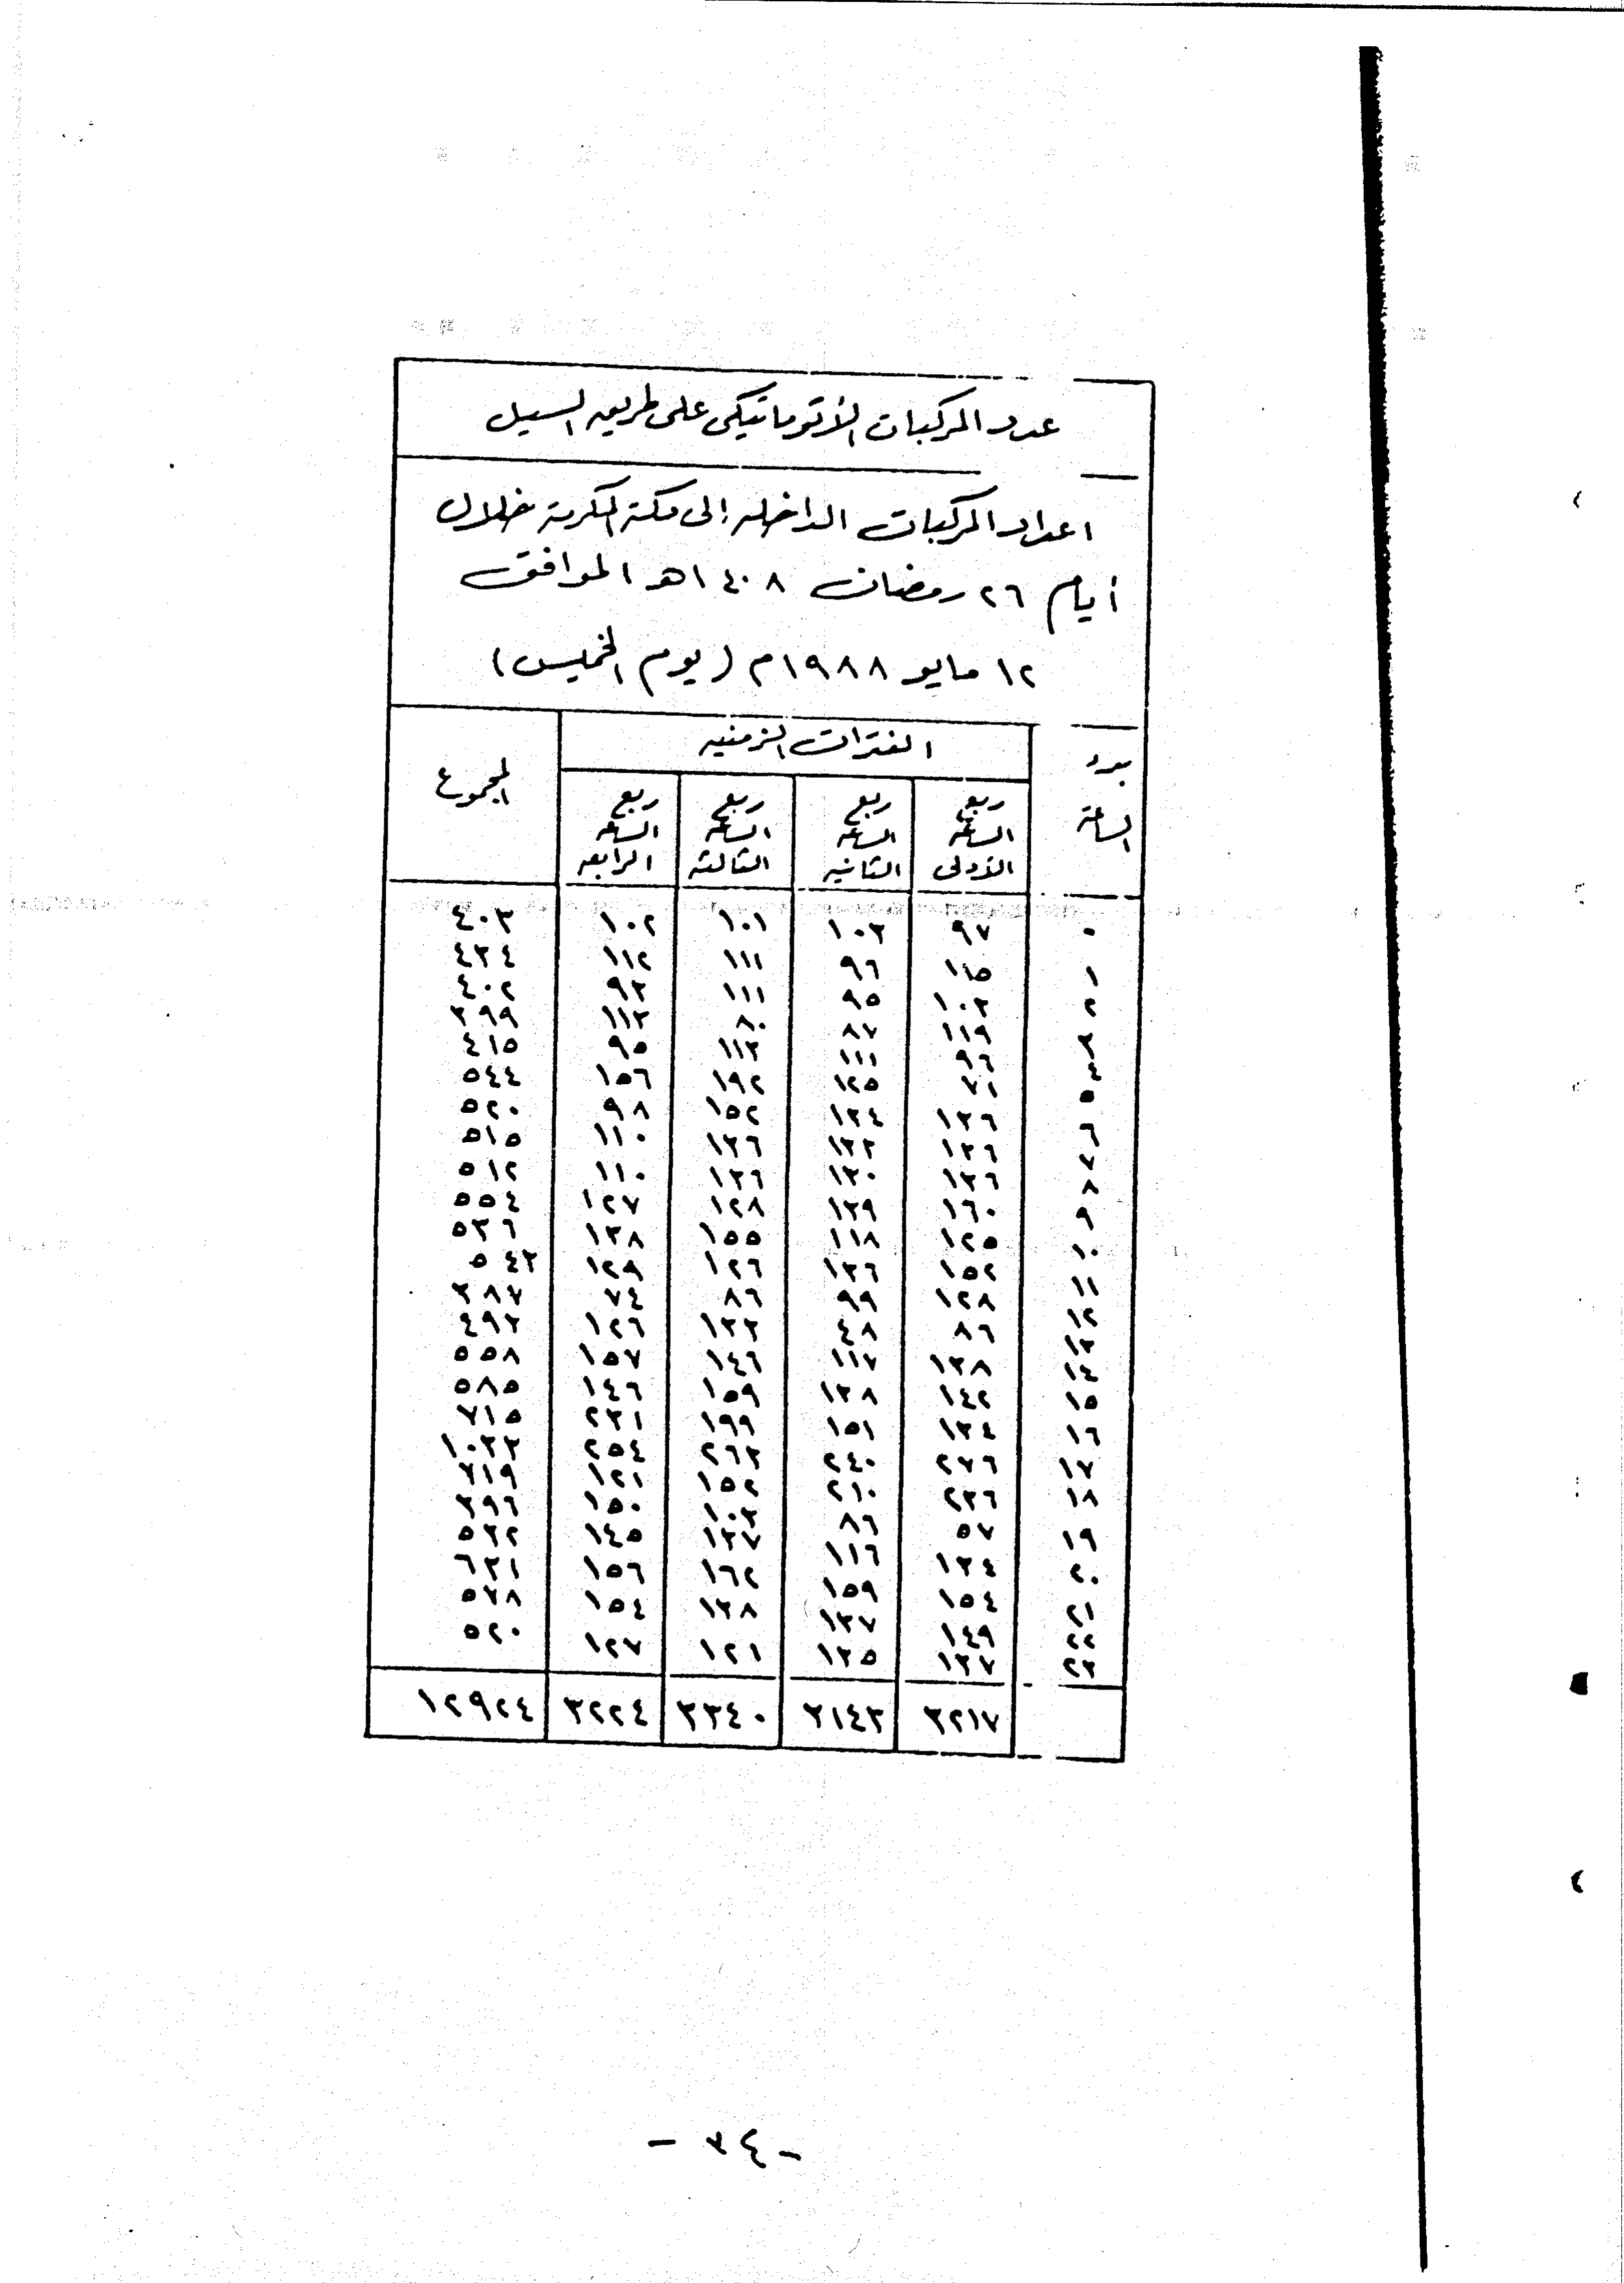 عدد المركبات الأتوماتيكى على طريق السيل
اعداد المركبات الداخله إلى مكة المكرمة خلال
أيام ٢٦ رمضان ١٤٠٨هـ الموافق
١٢ مايو ١٩٨٨م (يوم الخميس)
بدء الساعة الفترات الزمنيه المجموع
ربع الساعة الأولى ربع الساعة الثانيه ربع الساعة الثالثة ربع الساعة الرابعه
٠ ٩٧ ١٠٣ ١٠١ ١٠٢ ٤٠٣
١ ١١٥ ٩٦ ١١١ ١١٢ ٤٣٤
٢ ١٠٣ ٩٥ ١١١ ٩٣ ٤٠٢
٣ ١١٩ ٨٧ ٨٠ ١١٣ ٣٩٩
٤ ٩٦ ١١١ ١١٣ ٩٥ ٤١٥
٥ ٧١ ١٢٥ ١٩٢ ١٥٦ ٥٤٤
٦ ١٣٦ ١٣٤ ١٥٢ ٩٨ ٥٢٠
٧ ١٣٦ ١٣٣ ١٣٦ ١١٠ ٥١٥
٨ ١٣٦ ١٣٠ ١٣٦ ١١٠ ٥١٢
٩ ١٦٠ ١٣٩ ١٢٨ ١٢٧ ٥٥٤
١٠ ١٢٥ ١١٨ ١٥٥ ١٣٨ ٥٣٦
١١ ١٥٢ ١٣٦ ١٢٦ ١٢٩ ٥٤٣
١٢ ١٢٨ ٩٩ ٨٦ ٧٤ ٣٨٧
١٣ ٨٦ ٤٨ ١٣٣ ١٢٦ ٤٩٣
١٤ ١٣٨ ١١٧ ١٤٦ ١٥٧ ٥٥٨
١٥ ١٤٢ ١٣٨ ١٥٩ ١٤٦ ٥٨٥
١٦ ١٣٤ ١٥١ ١٩٩ ٢٣١ ٧١٥
١٧ ٢٧٦ ٢٤٠ ٢٦٣ ٢٥٤ ١٠٣٣
١٨ ٢٣٦ ٢١٠ ١٥٢ ١٢١ ٧١٩
١٩ ٥٧ ٨٦ ١٠٣ ١٥٠ ٣٩٦
٢٠ ١٣٤ ١١٦ ١٣٧ ١٤٥ ٥٣٢
٢١ ١٥٤ ١٥٩ ١٦٢ ١٥٦ ٦٣١
٢٢ ١٤٩ ١٣٧ ١٣٨ ١٥٤ ٥٧٨
٢٣ ١٣٧ ١٣٥ ١٢١ ١٢٧ ٥٢٠
٣٢١٧ ٣١٤٣ ٣٣٤٠ ٣٢٢٤ ١٢٩٢٤
- ٣٤ -